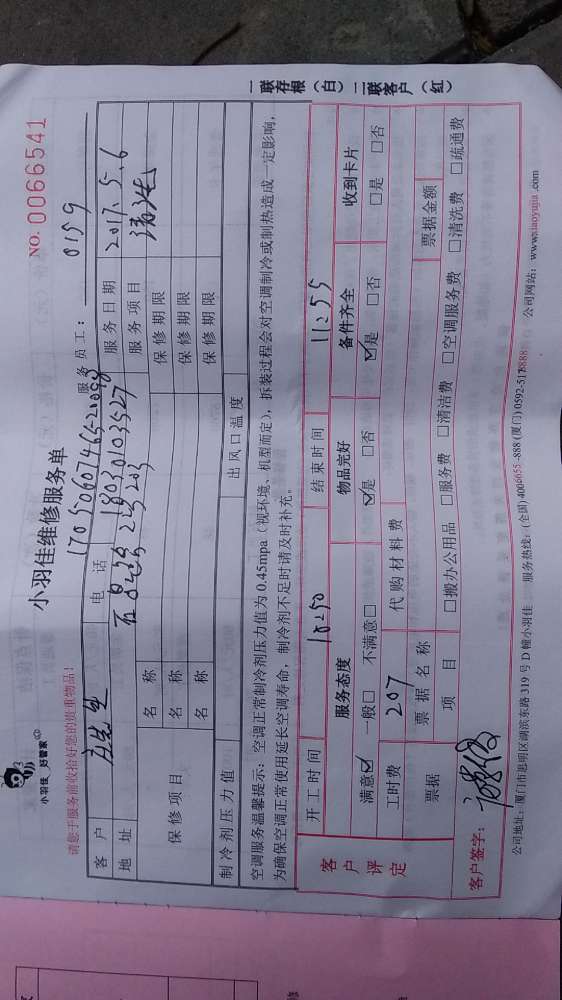 小羽佳 好管家
小羽佳维修服务单
NO. 0066541
请您于服务前收拾好您的贵重物品!
服务员工: 0159
客户 方先生 电话 18030103527 服务日期 2017.5.6
地址 服务项目 清洗
保修项目 名称 保修期限
名称 保修期限
名称 保修期限
制冷剂压力值 出风口温度
空调服务温馨提示: 空调正常制冷剂压力值为0.45mpa(视环境、机型而定), 拆装过程会对空调制冷或制热造成一定影响,
为确保空调正常使用延长空调寿命, 制冷剂不足时请及时补充。
客户评定
开工时间 10:50 结束时间 11:55
服务态度 物品完好 备件齐全 收到卡片
满意☑ 一般□ 不满意□ ☑是 □否 ☑是 □否 □是 □否
工时费 207 代购材料费
票据 票据名称 票据金额
项目 □搬办公用品 □服务费 □清洁费 □空调服务费 □清洗费 □疏通费
客户签字:
公司地址: 厦门市思明区湖滨东路319号D幢小羽佳 服务热线: (全国)4006055-888 (厦门)0592-5178888 公司网站: www.xiaoyujia.com
一联存根(白) 二联客户(红)